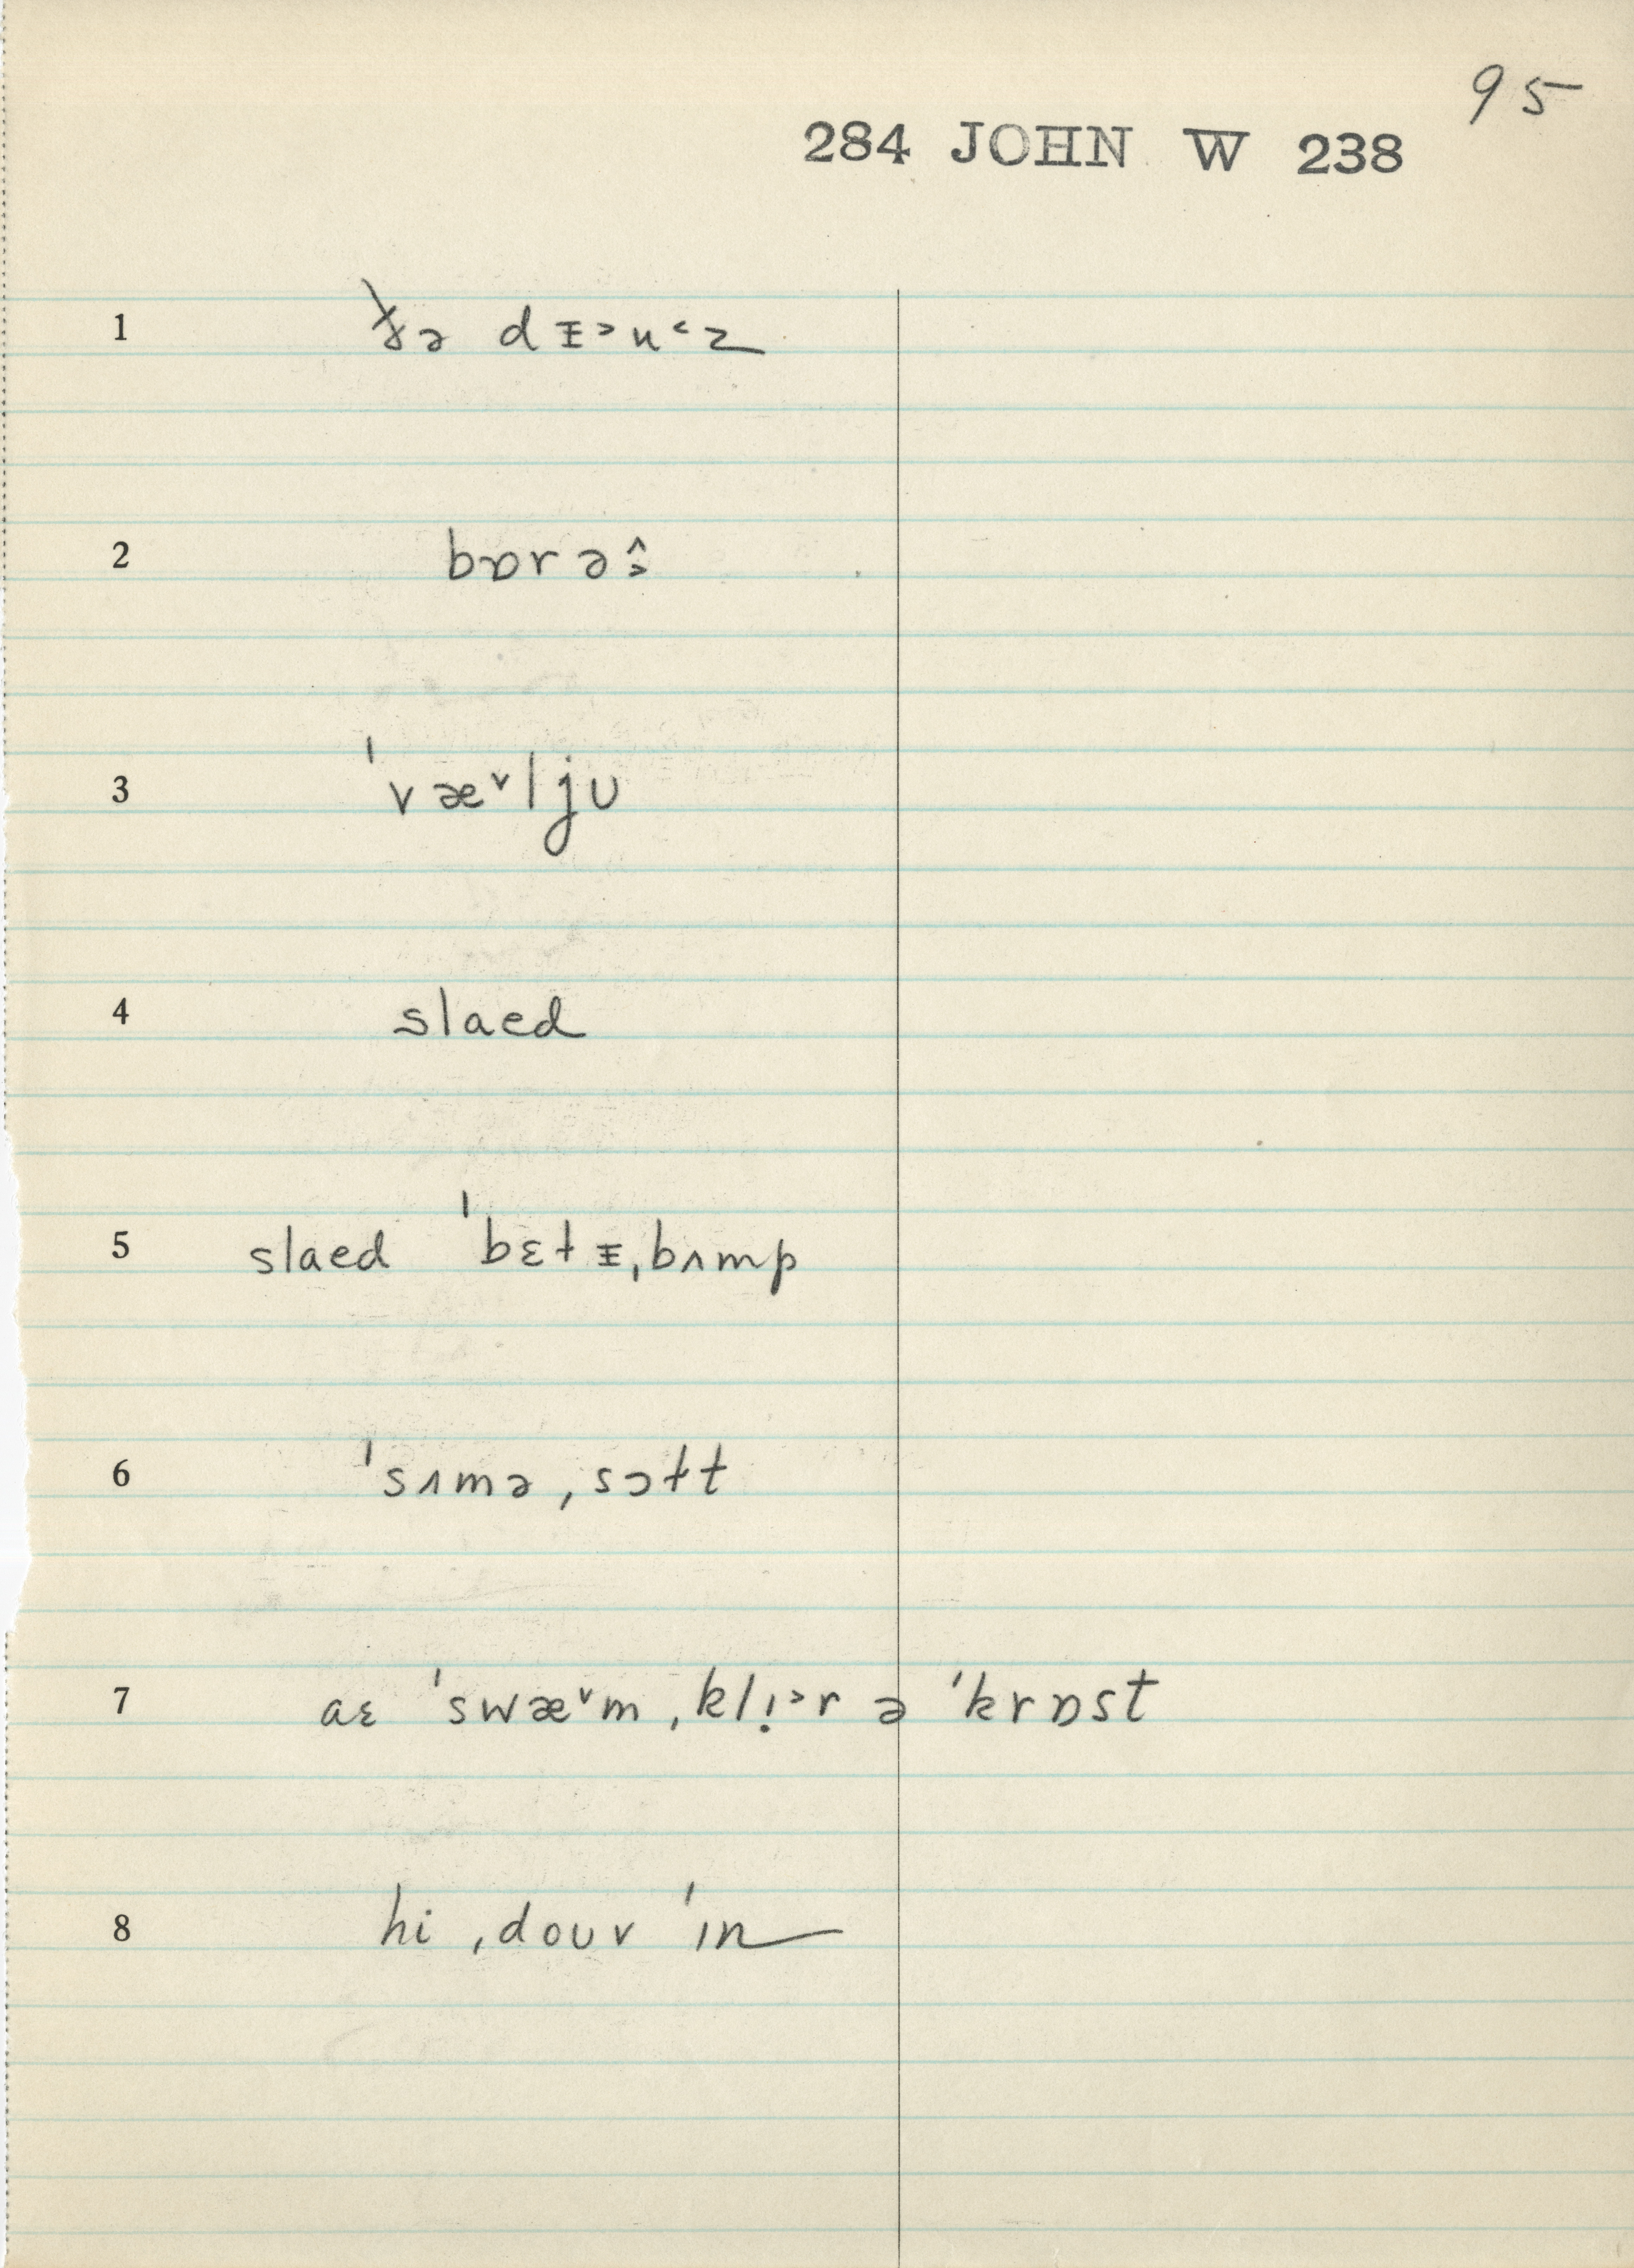 95
284 JOHN W 238
1 ðə dᵻ˃u˂z
2 bɒrə˄˃
3 ˈvæ˅ljʊ
4 slaed
5 slaed ˈbɛtᵻˌbʌmp
6 ˈsʌməˌsɔtt
7 aɛ ˈswæ˅m ˌklị˃r ə ˈkrɒst
8 hi ˌdoʊv ˈɪn